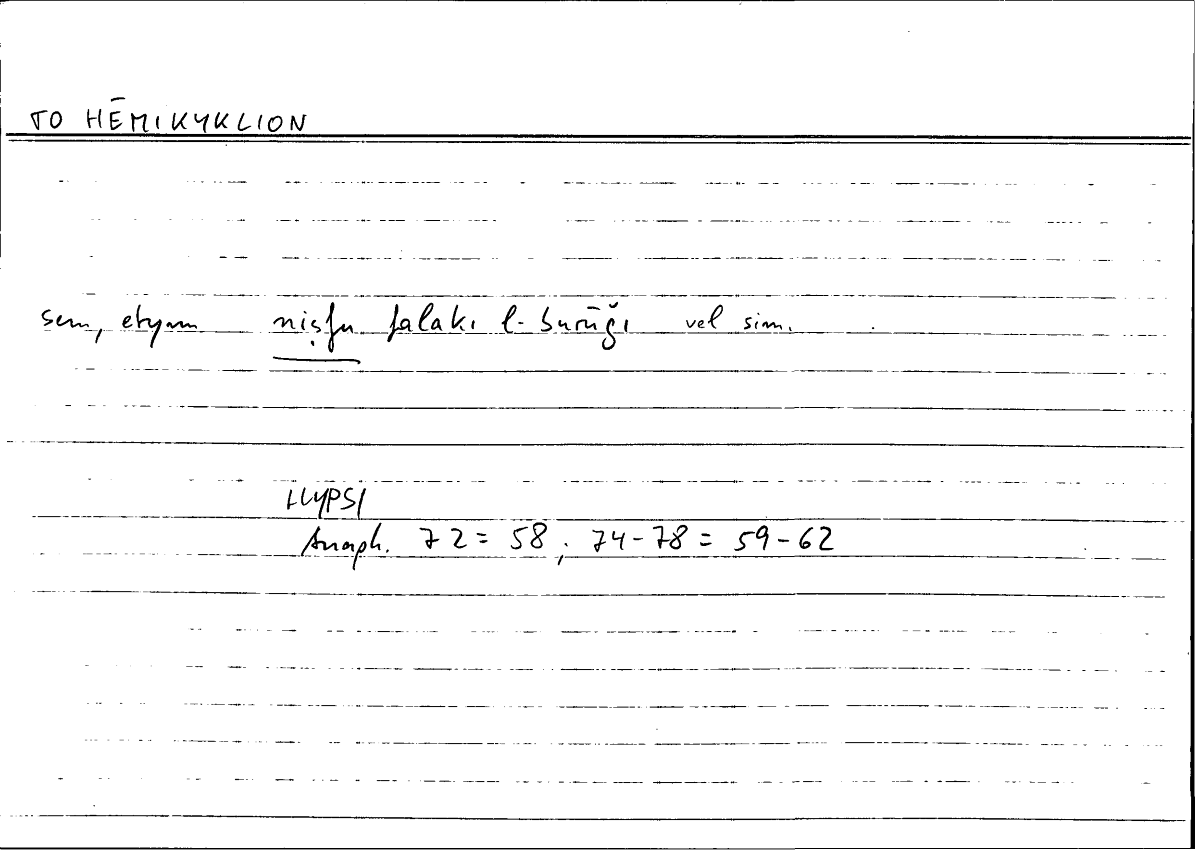 TO HĒMIKYKLION
sem, etym niṣfu falaki l-burūǧi vel sim.
HYPSI
Anaph. 72 = 58; 74-78 = 59-62